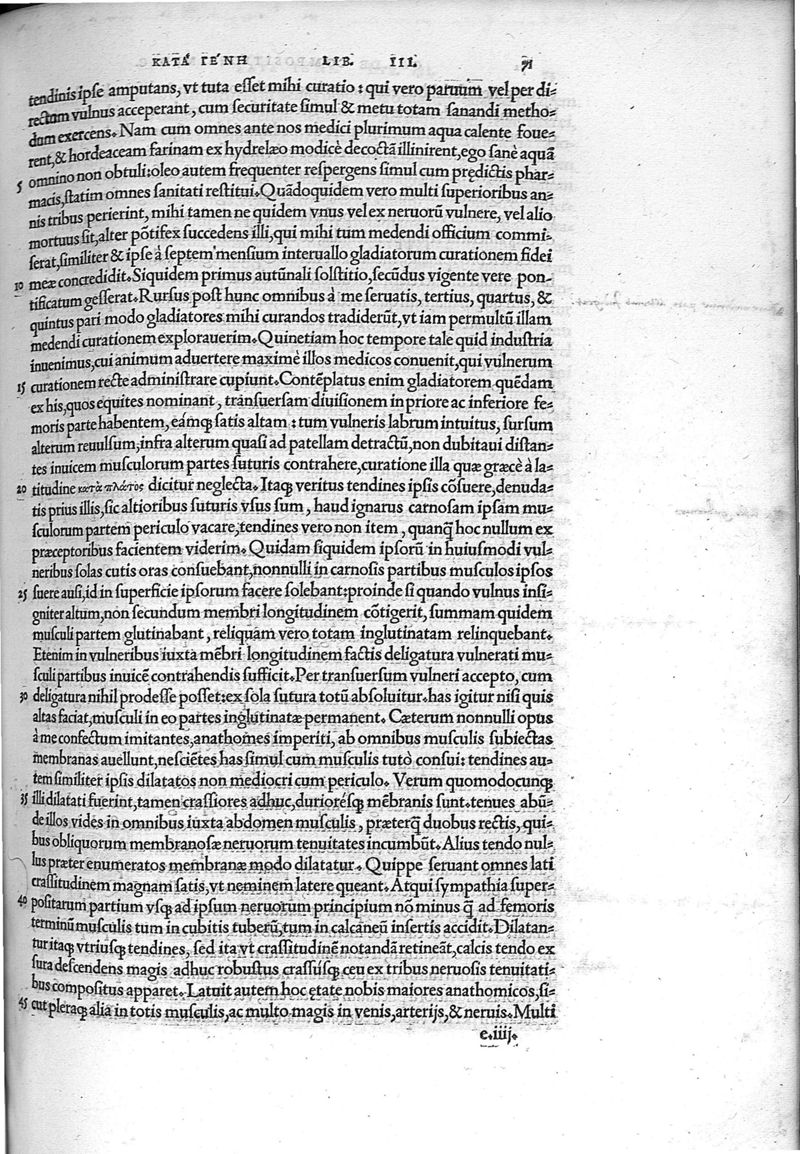 ΚΑΤΆ ΓΈΝΗ LIB. III. 71
tendinis ipse amputans, vt tuta esset mihi curatio: qui vero paruum vel per di-
rectum vulnus acceperant, cum securitate simul & metu totam sanandi metho-
dum exercens. Nam cum omnes ante nos medici plurimum aqua calente foue-
rent, & hordeaceam farinam ex hydrelæo modicè decoctā illinirent, ego sanè aquā
5 omnino non obtuli: oleo autem frequenter respergens simul cum prędictis phar-
macis, statim omnes sanitati restitui. Quādoquidem vero multi superioribus an-
nis tribus perierint, mihi tamen ne quidem vnus vel ex neruorū vulnere, vel alio
mortuus sit, alter pōtifex succedens illi, qui mihi tum medendi officium commi-
serat, similiter & ipse à septem mensium interuallo gladiatorum curationem fidei
10 meæ concredidit. Siquidem primus autūnali solstitio, secūdus vigente vere pon-
tificatum gesserat. Rursus post hunc omnibus à me seruatis, tertius, quartus, &
quintus pari modo gladiatores mihi curandos tradiderūt, vt iam permultū illam
medendi curationem explorauerim. Quinetiam hoc tempore tale quid industria
inuenimus, cui animum aduertere maximè illos medicos conuenit, qui vulnerum
15 curationem recte administrare cupiunt. Contēplatus enim gladiatorem quēdam
ex his, quos equites nominant, transuersam diuisionem in priore ac inferiore fe-
moris parte habentem, eámq; satis altam: tum vulneris labrum intuitus, sursum
alterum reuulsum, infra alterum quasi ad patellam detractū, non dubitaui distan-
tes inuicem musculorum partes suturis contrahere, curatione illa quæ græcè à la-
20 titudine κατὰ πλάτος dicitur neglecta. Itaq; veritus tendines ipsis cōsuere, denuda-
tis prius illis, sic altioribus suturis vsus sum, haud ignarus carnosam ipsam mu-
sculorum partem periculo vacare, tendines vero non item, quanq̃ hoc nullum ex
præceptoribus facientem viderim. Quidam siquidem ipsorū in huiusmodi vul-
neribus solas cutis oras consuebant, nonnulli in carnosis partibus musculos ipsos
25 suere ausi, id in superficie ipsorum facere solebant: proinde si quando vulnus insi-
gniter altum, non secundum membri longitudinem cōtigerit, summam quidem
musculi partem glutinabant, reliquam vero totam inglutinatam relinquebant.
Etenim in vulneribus iuxta mēbri longitudinem factis deligatura vulnerati mu-
sculi partibus inuicē contrahendis sufficit. Per transuersum vulneri accepto, cum
30 deligatura nihil prodesse posset: ex sola sutura totū absoluitur. has igitur nisi quis
altas faciat, musculi in eo partes inglutinatæ permanent. Cæterum nonnulli opus
à me confectum imitantes, anathomes imperiti, ab omnibus musculis subiectas
membranas auellunt, nesciētes has simul cum musculis tutò consui: tendines au-
tem similiter ipsis dilatatos non mediocri cum periculo. Verum quomodocunq;
35 illi dilatati fuerint, tamen crassiores adhuc, duriorésq; mēbranis sunt. tenues abū-
de illos vides in omnibus iuxta abdomen musculis, præterq̃ duobus rectis, qui-
bus obliquorum membranosæ neruorum tenuitates incumbūt. Alius tendo nul-
lus præter enumeratos membranæ modo dilatatur. Quippe seruant omnes lati
crassitudinem magnam satis, vt neminem latere queant. Atqui sympathia super-
40 positarum partium vsq; ad ipsum neruorum principium nō minus q̃ ad femoris
terminū musculis tum in cubitis tuberū, tum in calcaneū insertis accidit. Dilatan-
tur itaq; vtriusq; tendines, sed ita vt crassitudinē notandā retineāt, calcis tendo ex
sura descendens magis adhuc robustus crassúsq; ceu ex tribus neruosis tenuitati-
bus compositus apparet. Latuit autem hoc ętate nobis maiores anathomicos, si-
45 cut pleraq; alia in totis musculis, ac multo magis in venis, arterijs, & neruis. Multi
e.iiij.